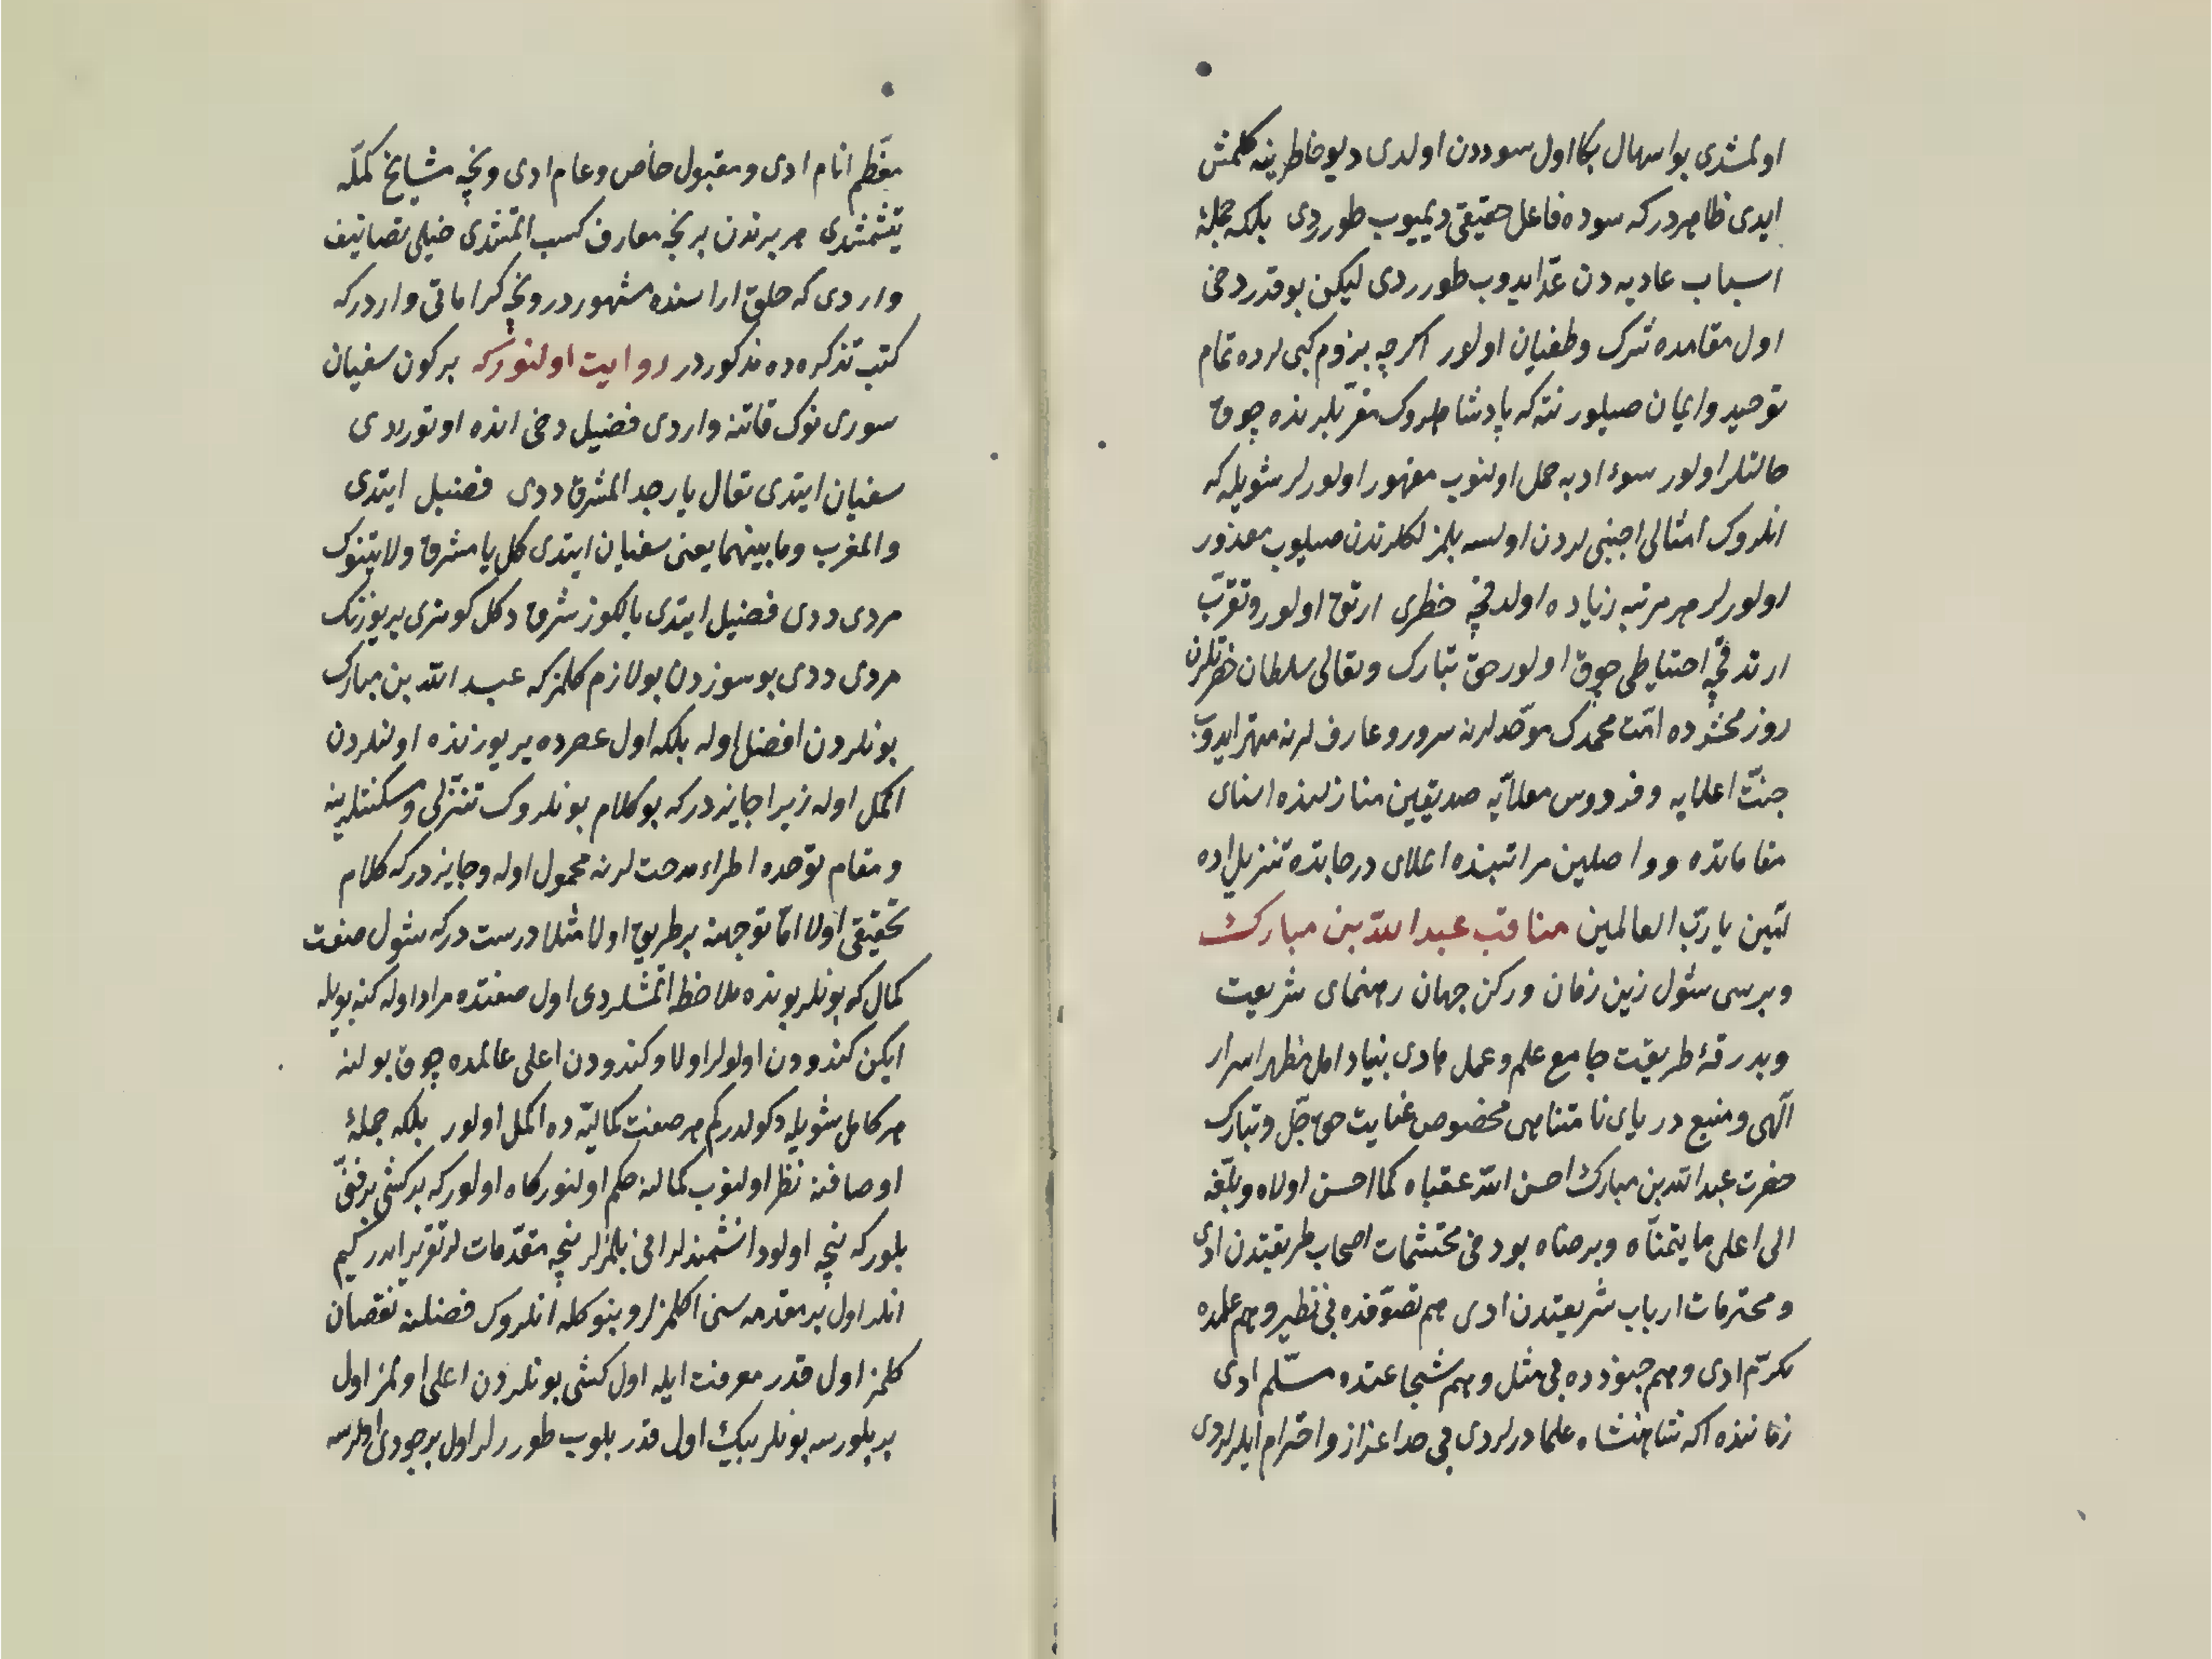 اولمشدی بو اسهال بكا اول سوددن اولدی دیو خاطرینه كلمش
ایدی ظاهردركه سوده فاعل حقیقی دیمیوب طورردی بلكه جمله
اسباب عادیه دن عدّ ایدوب طورردی لیكن بو قدر دخی
اول مقامده شرك وطغیان اولور اكرچه بزوم كبی لرده تمام
توحید وایمان صیلور نته كه پادشاهلروك مقرّبلرنده چوق
حالتلر اولور سوء ادبه حمل اولنوب مقهور اولورلر شویله كه
انلروك امثالی اجنبی لردن اولسه بلمزلكلرندن صیلوب معذور
اولورلر هر مرتبه زیاده اولدقچه خطری ارتق اولور وتقرّب
ارتدقچه احتیاطی چوق اولور حق تبارك وتعالی سلطان حضرتلرن
روز محشرده امّت محمدك موحّدلرنه سرور وعارف لرنه مهتر ایدوب
جنّت اعلایه وفردوس معلّایه صدیقین منازلنده اسنای
مقاماتده وواصلین مراتبنده اعلای درجاتده تنزیل اده
آمین یا ربّ العالمین مناقب عبد الله بن مبارك
وبرسی شول زین زمان وركن جهان رهنمای شریعت
وبدرقهٔ طریقت جامع علم وعمل هادی بنیاد امل مظهر اسرار
آلهی ومنبع دریای نامتناهی مخصوص عنایت حق جلّ وتبارك
حضرت عبد الله بن مبارك احسن الله عقباه كما احسن اولاه وبلّغه
الی اعلی ما یتمنّاه ویرضاه بو دخی محتشمات اصحاب طریقتدن ادی
ومحترمات ارباب شریعتدن ادی هم تصوّفده بی نظیر وهم علمده
مكرّم ادی وهم جودده بی مثل وهم شجاعتده مسلّم ادی
زماننده اكه شاهنشاه علما درلردی بی حد اعزاز واحترام ایلرلردی
معظّم انام ادی ومقبول خاص وعام ادی ونجه مشایخ كمّله
یتشمشدی هر برندن بر نجه معارف كسب اتمشدی خیلی تصانیف
واردی كه خلق اراسنده مشهوردر ونجه كراماتی واردركه
كتب تذكره ده مذكوردر روایت اولنوركه بركون سفیان
سوری نوك قاتنه واردی فضیل دخی انده اوتوردی
سفیان ایتدی تعال یا رجل المشرق ددی فضیل ایتدی
والمغرب وما بینهما یعنی سفیان ایتدی كل یا مشرق ولایتنوك
مردی ددی فضیل ایتدی یالكوز شرق دكل كوتری یریوزنك
مردی ددی بو سوزدن بو لازم كلمزكه عبد الله بن مبارك
بونلردن افضل اوله بلكه اول عصرده یریوزنده اولنلردن
اكمل اوله زیرا جایزدركه بو كلام بونلروك تنزّلی ومسكنتلرینه
ومقام توحده اطراء مدحت لرنه محمول اوله وجایزدركه كلام
تحقیقی اولا امّا توجهنه برطریق اولا مثلا درستدركه شول صفت
كمال كه بونلر بونده ملاحظه اتمشلردی اول صفتده مراد اوله كنه بویله
ایكن كندودن اولولر اولا وكندودن اعلی عالمده چوق بولنه
هر كامل شویله دكولدركم هر صفت كمالیّه ده اكمل اولور بلكه جملهٔ
اوصافنه نظر اولنوب كمالنه حكم اولنور كاه اولوركه بركشی برفنّی
بلوركه نیچه اولو دانشمندلر انی بلمزلر نیچه مقدّمات لر تقریر ایدركیم
انلر اول برمقدمه سنی اكلمزلر وبنوكله انلروك فضلنه نقصان
كلمز اول قدر معرفت ایله اول كشی بونلردن اعلی اولمز اول
بر بلورسه بونلر بیك اول قدر بلوب طوررلر اول برجودی اولرسه